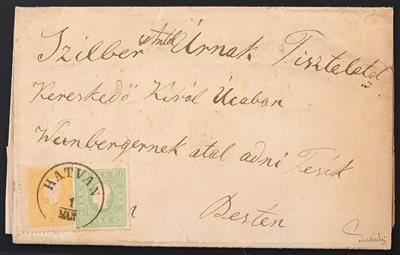 Szilber Antal Úrnak Tisztelettel
Kereskedő Király Úcaban
Weinbergernek atal adni Tésik
Pesten
HATVAN
1
MAR